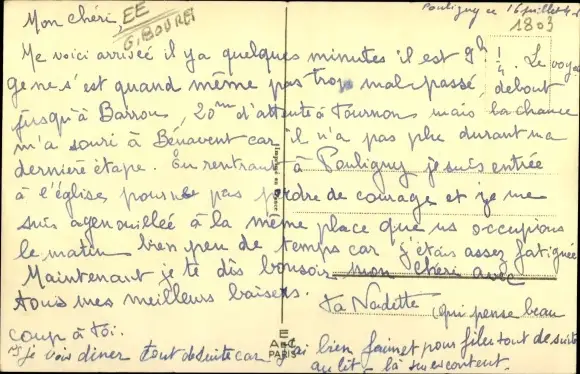 Pouligny ce 16 juillet
1803
Mon chéri,
EE
G. BOUREI
Me voici arrivée il y a quelques minutes il est 9h 1/4. Le voya
ge ne s'est quand même pas trop mal passé, debout
jusqu'à Barrou, 20mn d'attente à Tournon mais la chance
m'a souri à Bénavent car il n'a pas plu durant ma
dernière étape. En rentrant à Pouligny je suis entrée
à l'église, pour ne pas perdre de courage et je me
suis agenouillée à la même place que ns occupions
le matin bien peu de temps car j'étais assez fatiguée
Maintenant je te dis bonsoir mon chéri avec
tous mes meilleurs baisers.
Ta Nadette qui pense beau
coup à toi.
je vais diner tout de suite car j'ai bien faim et pour filer tout de suite
au lit - là
Imprimé en France
E
A C
PARIS